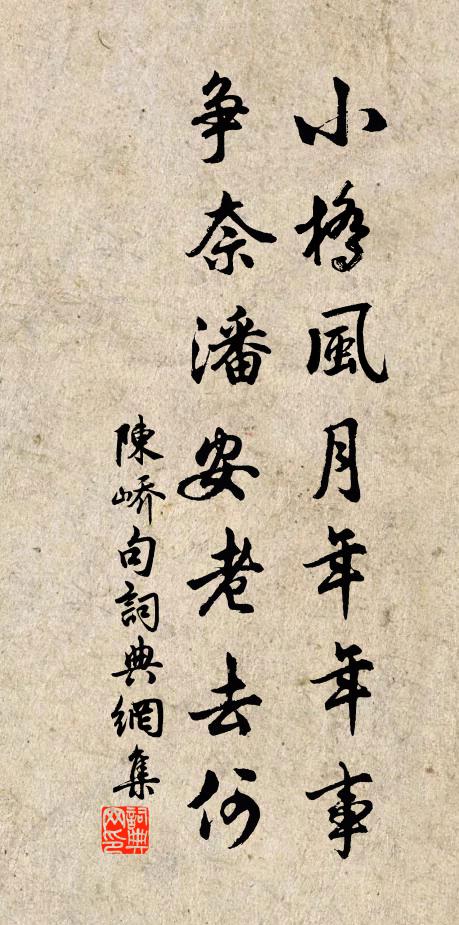 小橋風月年年事
争奈潘安老去何
陳嶠句詞典網集
詞典
网印